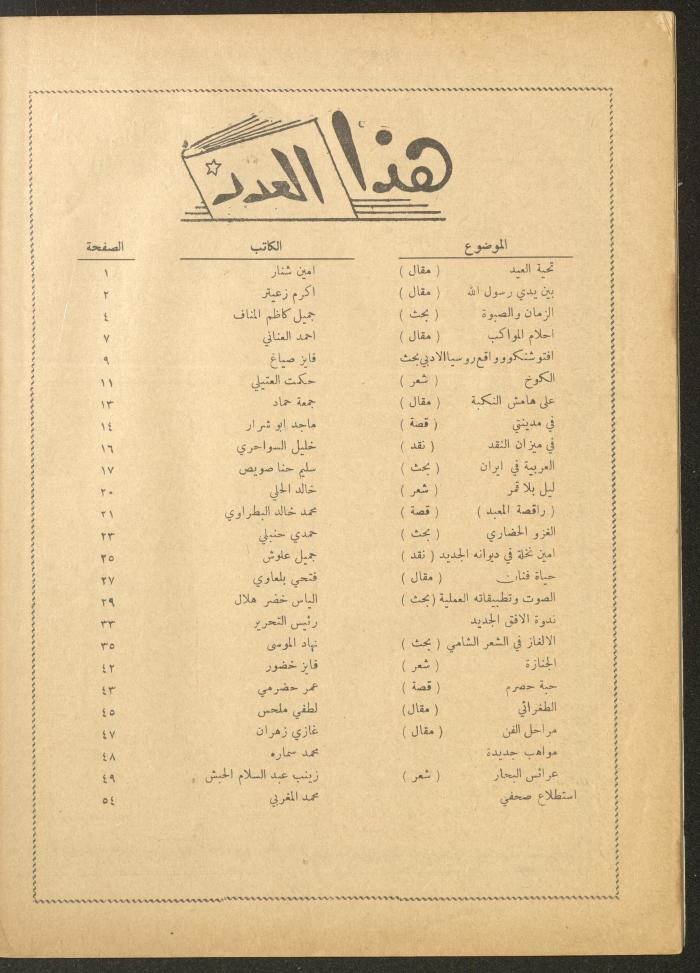 هذا العدد
الموضوع الكاتب الصفحة
تحية العيد ( مقال ) امين شنار ١
بين يدي رسول الله ( مقال ) اكرم زعيتر ٢
الزمان والصبوة ( بحث ) جميل كاظم المناف ٤
احلام المواكب ( مقال ) احمد العناني ٧
افتوشنكو وواقع روسيا الادبي بحث فايز صياغ ٩
الكوخ ( شعر ) حكمت العتيلي ١١
على هامش النكبة ( مقال ) جمعة حماد ١٣
في مدينتي ( قصة ) ماجد ابو شرار ١٤
في ميزان النقد ( نقد ) خليل السواحري ١٦
العربية في ايران ( بحث ) سليم حنا صويص ١٧
ليل بلا قمر ( شعر ) خالد الحلي ٢٠
( راقصة المعبد ) ( قصة ) محمد خالد البطراوي ٢١
الغزو الحضاري ( بحث ) حمدي حنبلي ٢٣
امين نخلة في ديوانه الجديد ( نقد ) جميل علوش ٢٥
حياة فنان ( مقال ) فتحي بلعاوي ٢٧
الصوت وتطبيقاته العملية ( بحث ) الياس خضر هلال ٢٩
ندوة الافق الجديد رئيس التحرير ٣٣
الالغاز في الشعر الشامي ( بحث ) نهاد الموسى ٣٥
الجنازة ( شعر ) فايز خضور ٤٢
حبة حصرم ( قصة ) عمر حضرمي ٤٣
الطغرائي ( مقال ) لطفي ملحس ٤٥
مراحل الفن ( مقال ) غازي زهران ٤٧
مواهب جديدة محمد سماره ٤٨
عرائس البحار ( شعر ) زينب عبد السلام الحبش ٤٩
استطلاع صحفي محمد المغربي ٥٤